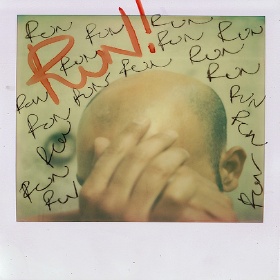 RUN RUN RUN
RUN!
RUN RUN RUN
RUN RUN RUN RUN
RUN RUN
RUN RUN
RUN RUN
RUN RUN
RUN RUN